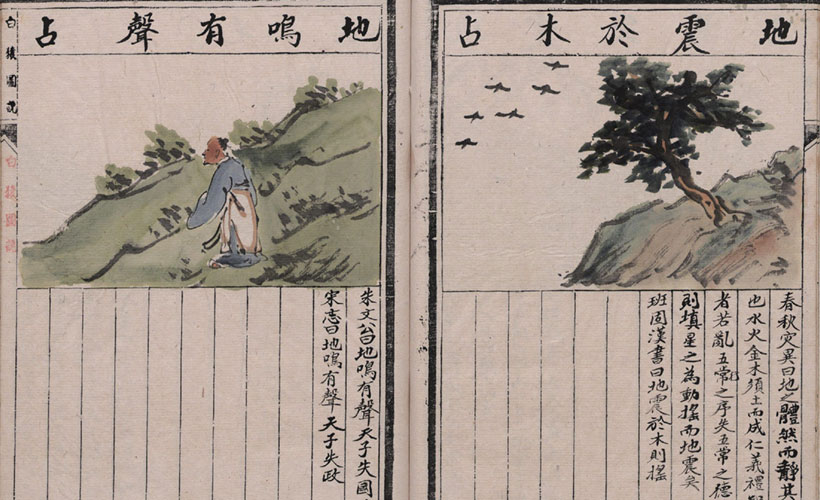 地震於木占
春秋灾異曰地之體然而靜其
也水火金木須土而成仁義禮
者若亂五常之序失五常之德
則填星之為動搖而地震矣
班固漢書曰地震於木則搖
地鳴有聲占
朱文公曰地鳴有聲天子失國
宋志曰地鳴有聲天子失政
白猿圖說
白猿圖說